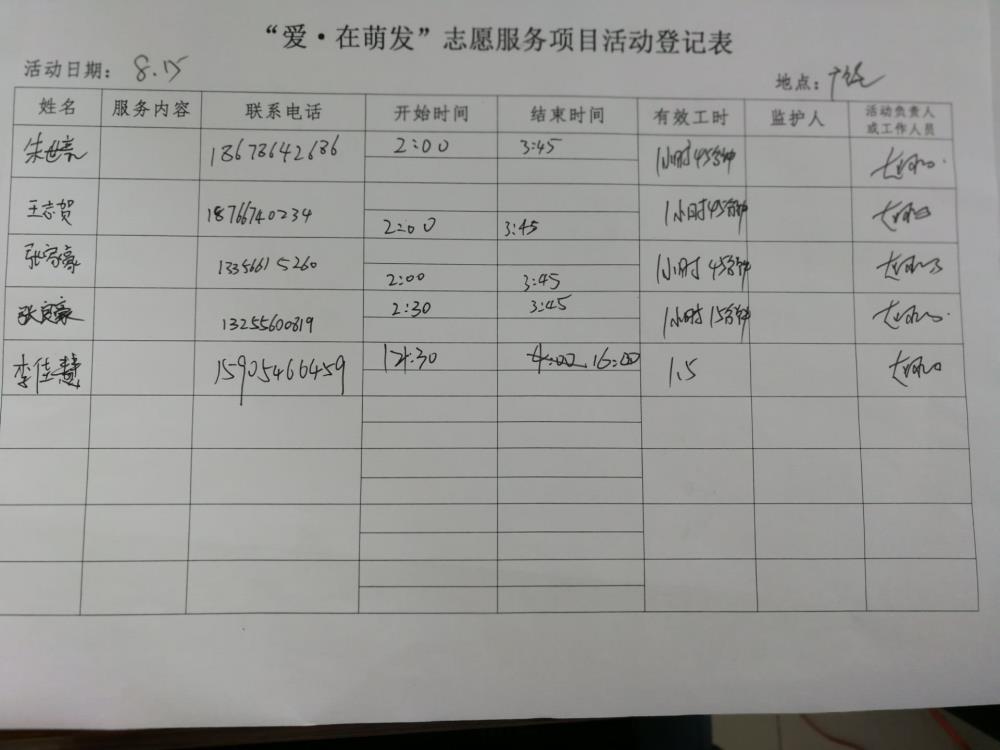 “爱·在萌发”志愿服务项目活动登记表
活动日期： 8.15
地点：
姓名 服务内容 联系电话 开始时间 结束时间 有效工时 监护人 活动负责人
或工作人员
18678642686 2:00 3:45 1小时45分钟
王志贺 18766740234 2:00 3:45 1小时45分钟
张家豪 13356615260 2:00 3:45 1小时45分钟
13255600819 2:30 3:45 1小时15分钟
李佳慧 15905466459 14:30 16:00 1.5